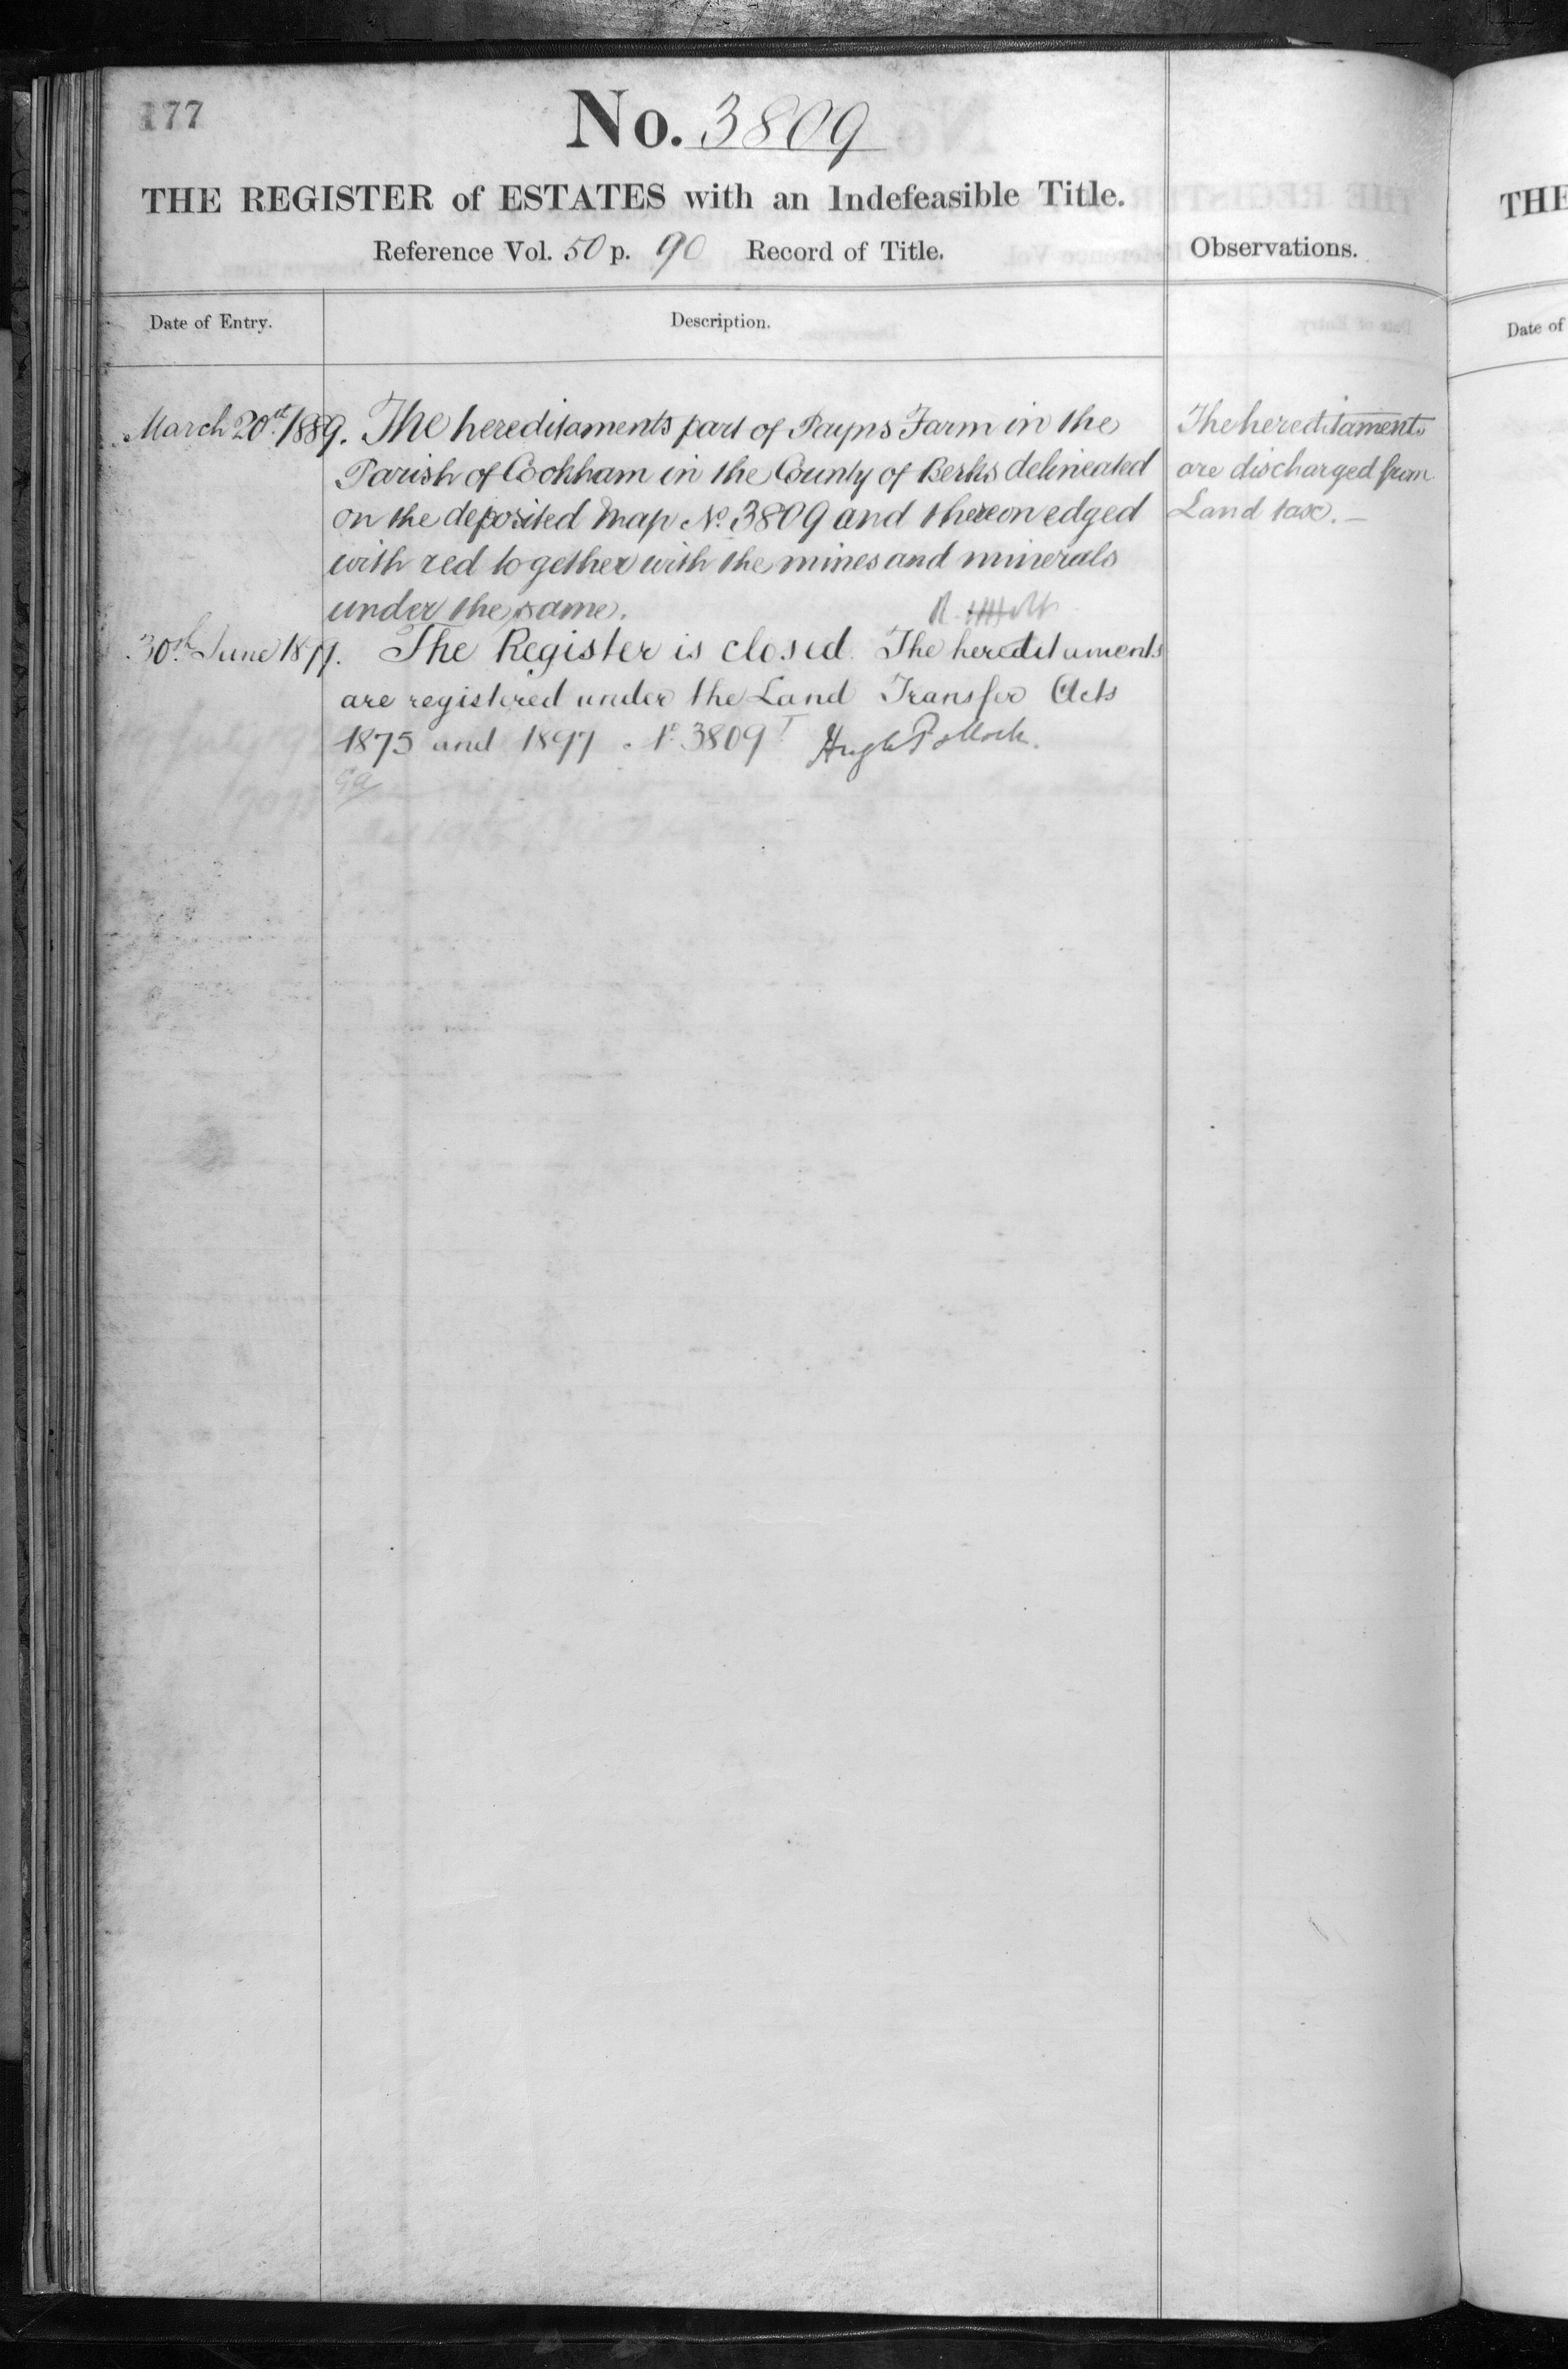 177
No. 3809
THE REGISTER of ESTATES with an Indefeasible Title.
Reference Vol. 50 p. 90 Record of Title.
Observations.
Date of Entry.
Description.
March 20th 1889. The hereditaments part of Payns Farm in the
Parish of Cookham in the County of Berks delineated
on the deposited Map No. 3809 and thereon edged
with red together with the mines and minerals
under the same.
The hereditaments
are discharged from
Land tax.—
30th June 1899. The Register is closed. The hereditaments
are registered under the Land Transfer Acts
1875 and 1897. No. 3809 Hugh Pollock.
THE
Date of